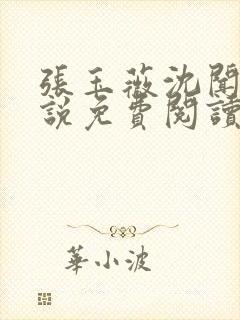 張玉薇沈聞
說免費閱讀
華小波